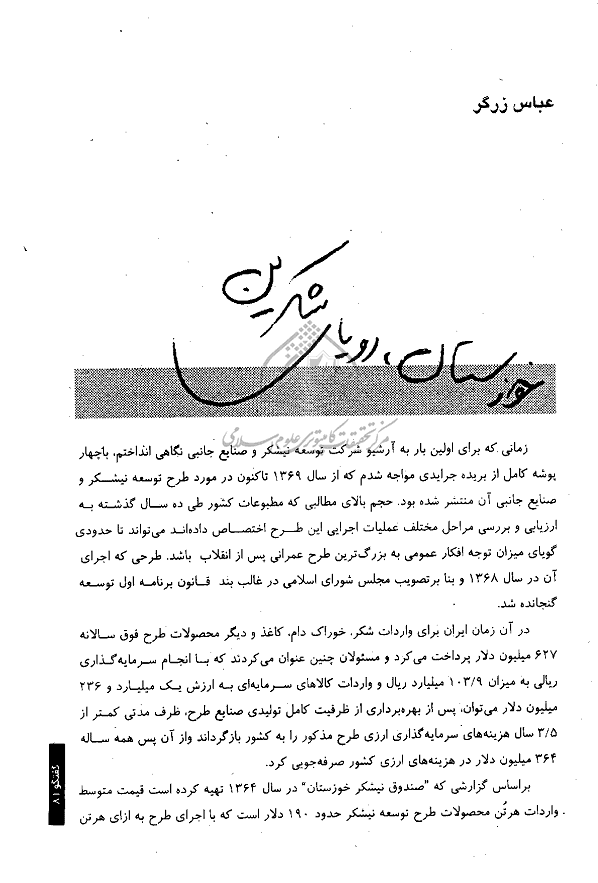 عباس زرگر
خوزستان، رویای شکرین
مرکز تحقیقات کامپیوتری علوم اسلامی
زمانی که برای اولین بار به آرشیو شرکت توسعه نیشکر و صنایع جانبی نگاهی انداختم، باچهار
پوشه کامل از بریده جرایدی مواجه شدم که از سال ۱۳۶۹ تاکنون در مورد طرح توسعه نیشـکـر و
صنایع جانبی آن منتشر شده بود. حجم بالای مطالبی که مطبوعات کشور طی ده سـال گذشـتـه بـه
ارزیابی و بررسی مراحل مختلف عملیات اجرایی این طـرح اختـصـاص داده‌انـد می‌تواند تا حدودی
گویای میزان توجه افکار عمومی به بزرگ‌ترین طرح عمرانی پس از انقلاب باشد. طرحی که اجرای
آن در سال ۱۳۶۸ و بنا برتصویب مجلس شورای اسلامی در غالب بند قـانون برنامه اول توسعه
گنجانده شد.
در آن زمان ایران برای واردات شکر، خوراک دام، کاغذ و دیگر محصولات طرح فوق سـالانه
۶۲۷ میلیون دلار پرداخت می‌کرد و مسئولان چنین عنوان می‌کردند که بـا انجام سـرمایه‌گذاری
ریالی به میزان ۱۰۳/۹ میلیارد ریال و واردات کالاهای سـرمایه‌ای به ارزش یک میلیـارد و ۲۳۶
میلیون دلار می‌توان، پس از بهره‌برداری از ظرفیت کامل تولیدی صنایع طرح، ظرف مدتی کمتر از
۳/۵ سال هزینه‌های سرمایه‌گذاری ارزی طرح مذکور را به کشور بازگرداند واز آن پس همه سـاله
۳۶۴ میلیون دلار در هزینه‌های ارزی کشور صرفه‌جویی کرد.
براساس گزارشی که "صندوق نیشکر خوزستان" در سال ۱۳۶۴ تهیه کرده است قیمت متوسط
واردات هرتُن محصولات طرح توسعه نیشکر حدود ۱۹۰ دلار است که با اجرای طرح به ازای هرتن
گفتگو ۸۱